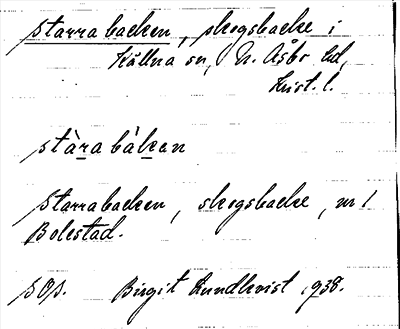 Starrabacken, skogsbacke i
Källna sn, N. Åsbo hd,
Krist. l.
stàra bàken
Starrabacken, skogsbacke, nr 1
Bolestad.
Birgit Lundkvist 1938.